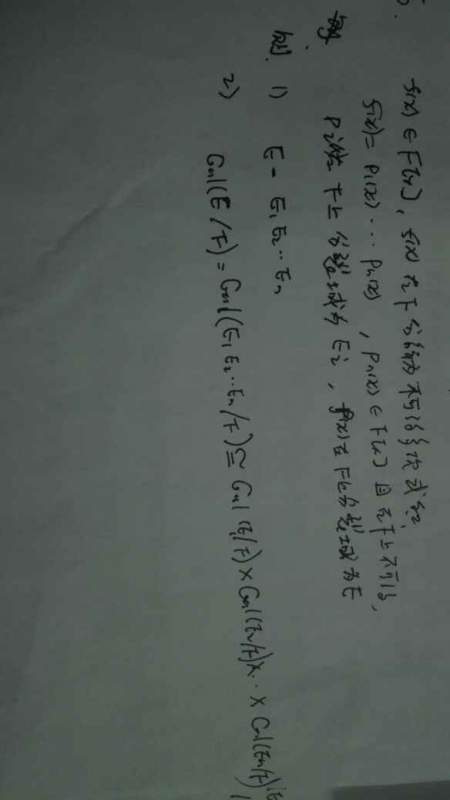 f(x) ∈ F[x], f(x) 在F上分解为不可约多项式
f(x) = P₁(x) ··· Pₙ(x), Pₙ(x) ∈ F[x] 且在F上不可约,
Pᵢ(x) 在F上分裂域为 Eᵢ, f(x)在F上分裂域为E
则 1) E = E₁E₂··Eₙ
2) Gal(E/F) = Gal(E₁E₂··Eₙ/F) ≅ Gal(E₁/F) × Gal(E₂/F) × ·· × Gal(Eₙ/F)